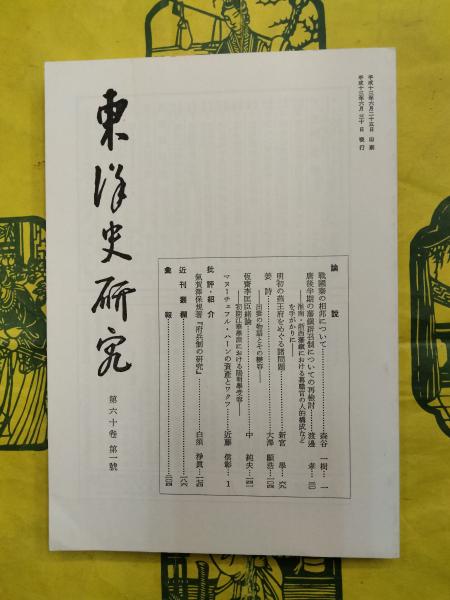 平成十三年六月二十五日 印刷
平成十三年六月三十日 發行
東洋史研究
第六十卷 第一號
論說
戰國秦の相邦について……………森谷 一樹…一
唐後半期の藩鎭辟召制についての再檢討……渡邊 孝…三〇
——淮南・浙西藩鎭における幕職官の人的構成などを手がかりに——
明初の燕王府をめぐる諸問題……………新宮 學…六六
姜詩……………大澤 顯浩…一〇四
——出妻の物語とその變容——
恆齋李匡臣緖論……………中 純夫…一四一
——初期江華學派における陽明學受容——
マヌーチェフル・ハーンの資產とワクフ……近藤 信彰…1
批評・紹介
氣賀澤保規著『府兵制の硏究』……………白須 淨眞…一七四
近刊叢欄……………一八六
彙報……………二〇四